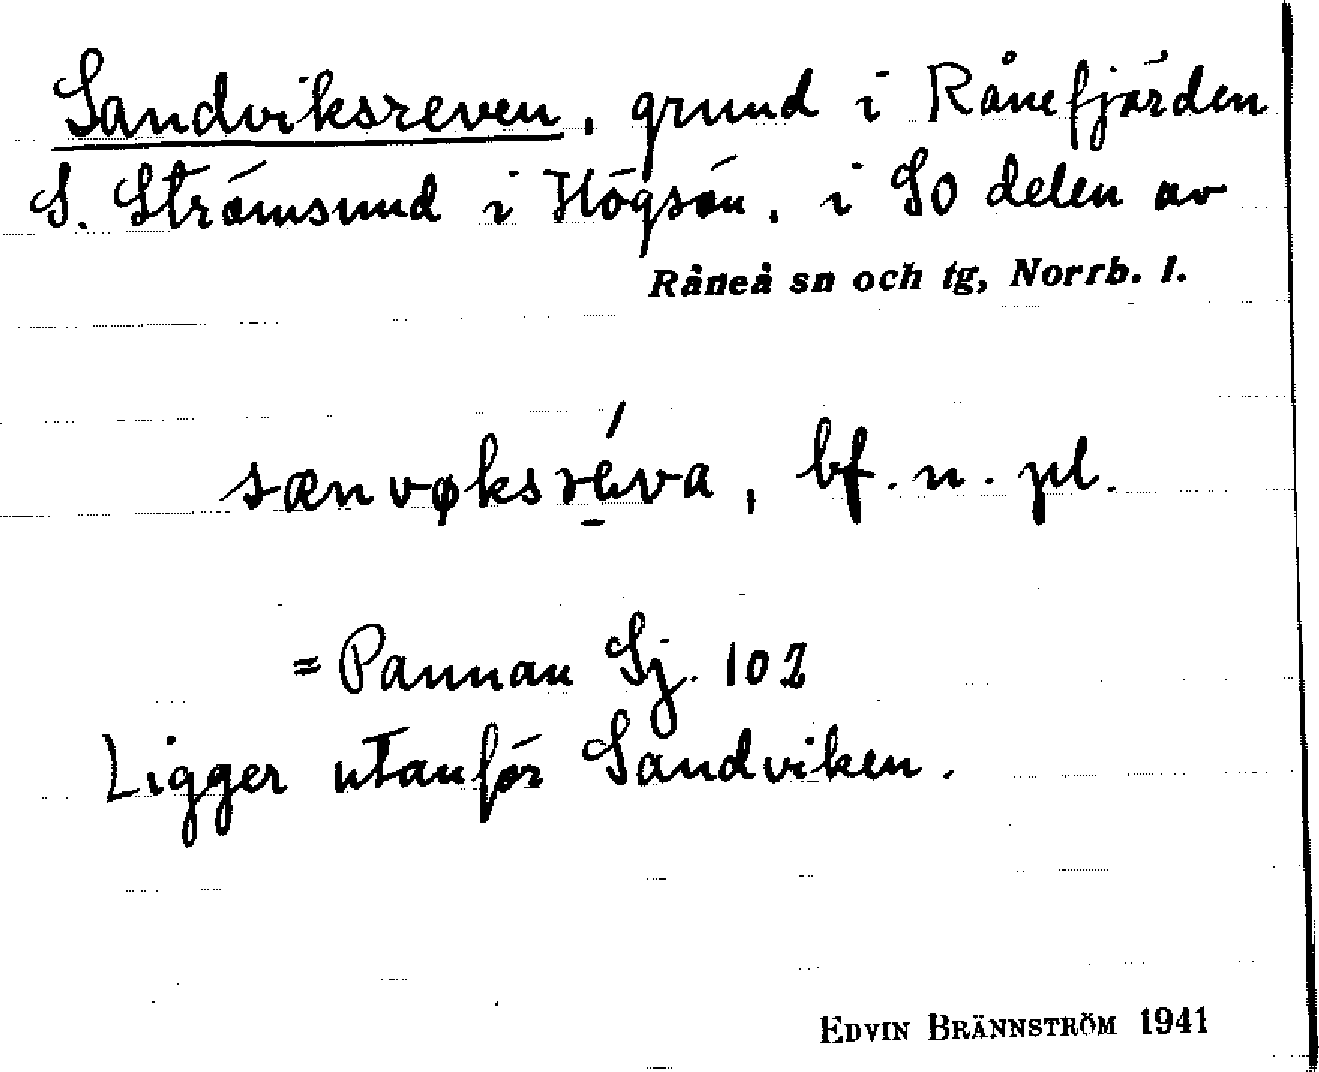 Sandviksreven, grund i Rånefjärden
S. Strömsund i Högsön, i SO delen av
Råneå sn och tg, Norrb. l.
sænvøksréva, bf. n. pl.
= Pannan Sj. 102
Ligger utanför Sandviken.
EDVIN BRÄNNSTRÖM 1941